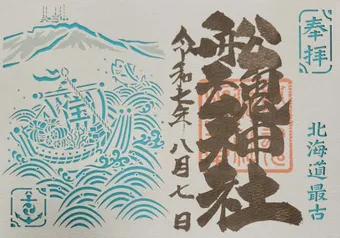 奉拝
北海道最古
舩魂神社
令和七年八月七日
宝